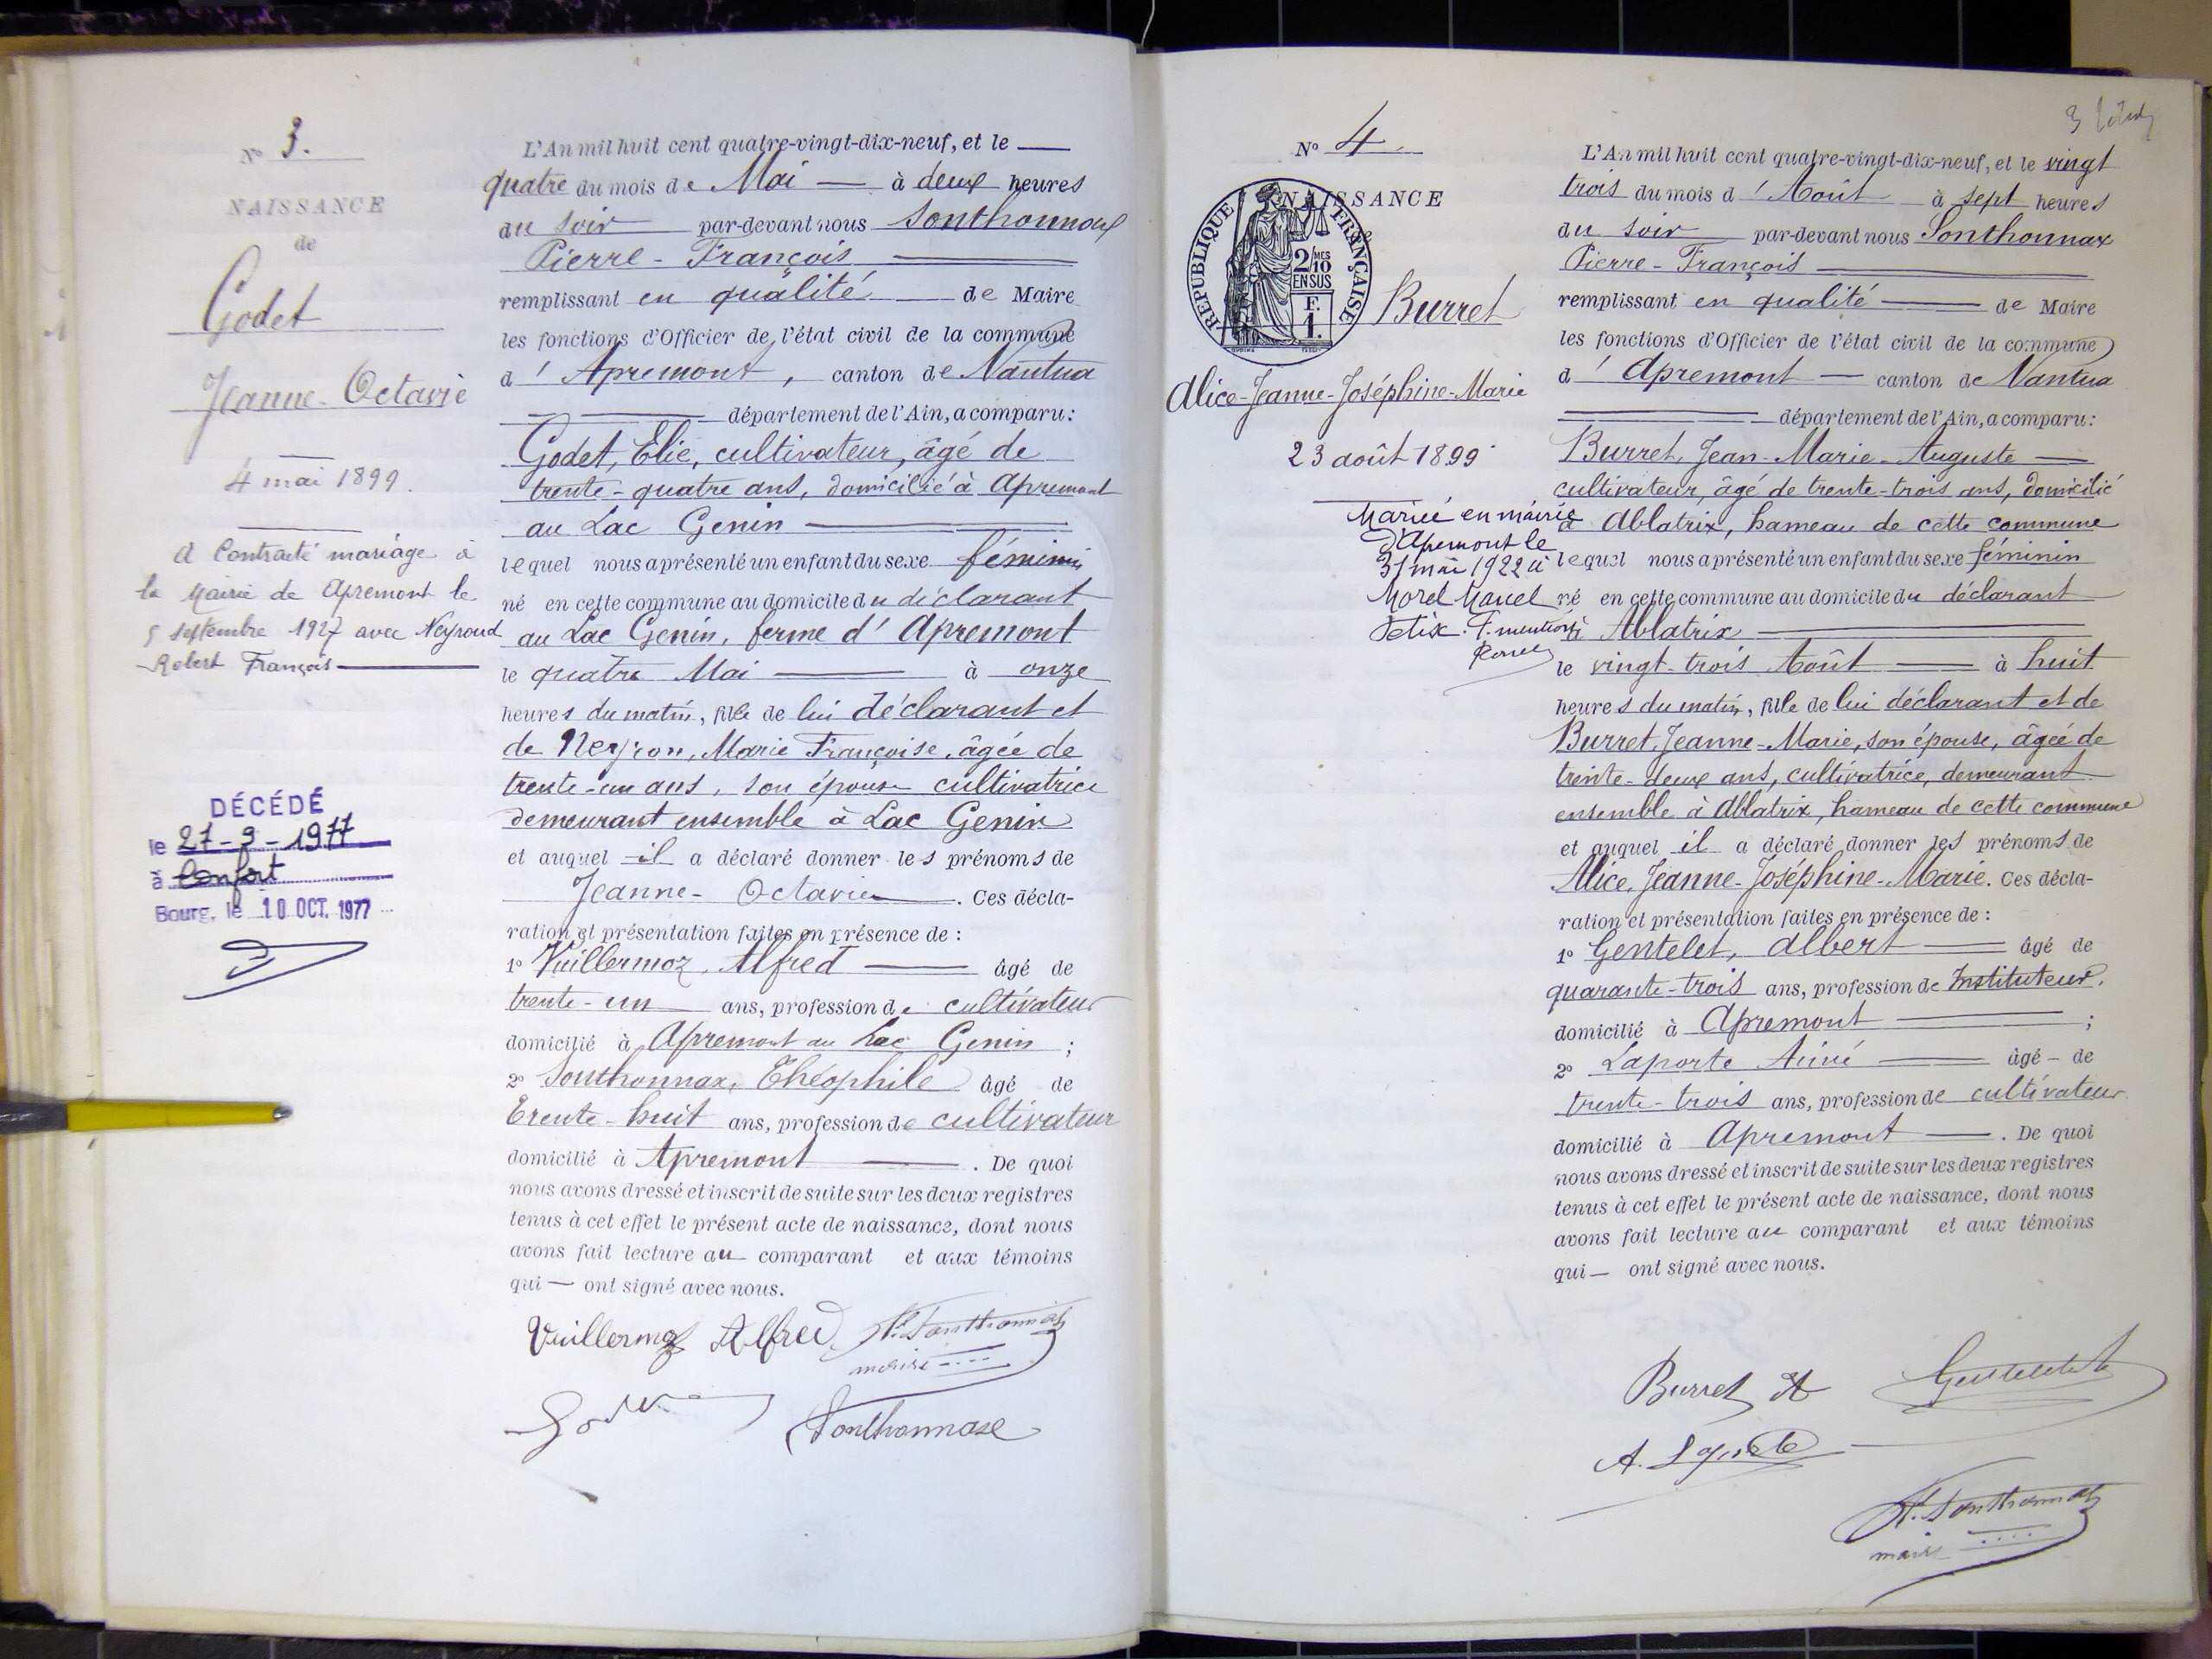 N° 3.
NAISSANCE
de
Godet
Jeanne-Octavie
4 mai 1899.
A Contracté mariage à
la Mairie de Apremont le
5 septembre 1927 avec Neyroud
Robert François
DÉCÉDÉ
le 27-9-1977
à Confort
Bourg, le 10 OCT. 1977
L'An mil huit cent quatre-vingt-dix-neuf, et le
quatre du mois de Mai à deux heures
du soir par-devant nous Sonthonnax
Pierre-François
remplissant en qualité de Maire
les fonctions d'Officier de l'état civil de la commune
d'Apremont, canton de Nantua
département de l'Ain, a comparu:
Godet, Elie, cultivateur, âgé de
trente-quatre ans, domicilié à Apremont
au Lac Genin
lequel nous a présenté un enfant du sexe féminin
né en cette commune au domicile du déclarant
au Lac Genin, ferme d'Apremont
le quatre Mai à onze
heures du matin, fille de lui déclarant et
de Neyron, Marie Françoise, âgée de
trente-un ans, son épouse cultivatrice
demeurant ensemble à Lac Genin
et auquel il a déclaré donner les prénoms de
Jeanne-Octavie. Ces décla-
ration et présentation faites en présence de:
1° Vuillermoz, Alfred âgé de
trente-un ans, profession de cultivateur
domicilié à Apremont au Lac Genin;
2° Sonthonnax, Théophile âgé de
trente-huit ans, profession de cultivateur
domicilié à Apremont. De quoi
nous avons dressé et inscrit de suite sur les deux registres
tenus à cet effet le présent acte de naissance, dont nous
avons fait lecture au comparant et aux témoins
qui — ont signé avec nous.
Vuillermoz Alfred Sonthonnax
maire
Godet Sonthonnax
N° 4.
NAISSANCE
RÉPUBLIQUE FRANÇAISE
2/10
MES
EN SUS
F.
1.
Burret
Alice-Jeanne-Joséphine-Marie
23 août 1899
Mariée en mairie
d'Apremont le
31 mai 1922 à
Morel Marcel
Félix. P. mention
L'An mil huit cent quatre-vingt-dix-neuf, et le vingt
trois du mois d'Août à sept heures
du soir par-devant nous Sonthonnax
Pierre-François
remplissant en qualité de Maire
les fonctions d'Officier de l'état civil de la commune
d'Apremont — canton de Nantua
département de l'Ain, a comparu:
Burret, Jean-Marie-Auguste
cultivateur, âgé de trente-trois ans, domicilié
à Ablatrix, hameau de cette commune
lequel nous a présenté un enfant du sexe féminin
né en cette commune au domicile du déclarant
à Ablatrix
le vingt-trois Août à huit
heures du matin, fille de lui déclarant et de
Burret, Jeanne-Marie, son épouse, âgée de
trente-deux ans, cultivatrice, demeurant
ensemble à Ablatrix, hameau de cette commune
et auquel il a déclaré donner les prénoms de
Alice, Jeanne-Joséphine-Marie. Ces décla-
ration et présentation faites en présence de:
1° Gentelet, Albert âgé de
quarante-trois ans, profession de Instituteur.
domicilié à Apremont;
2° Laporte Aimé âgé de
trente-trois ans, profession de cultivateur
domicilié à Apremont. De quoi
nous avons dressé et inscrit de suite sur les deux registres
tenus à cet effet le présent acte de naissance, dont nous
avons fait lecture au comparant et aux témoins
qui — ont signé avec nous.
Burret A Gentelet
A. Laporte
Sonthonnax
maire